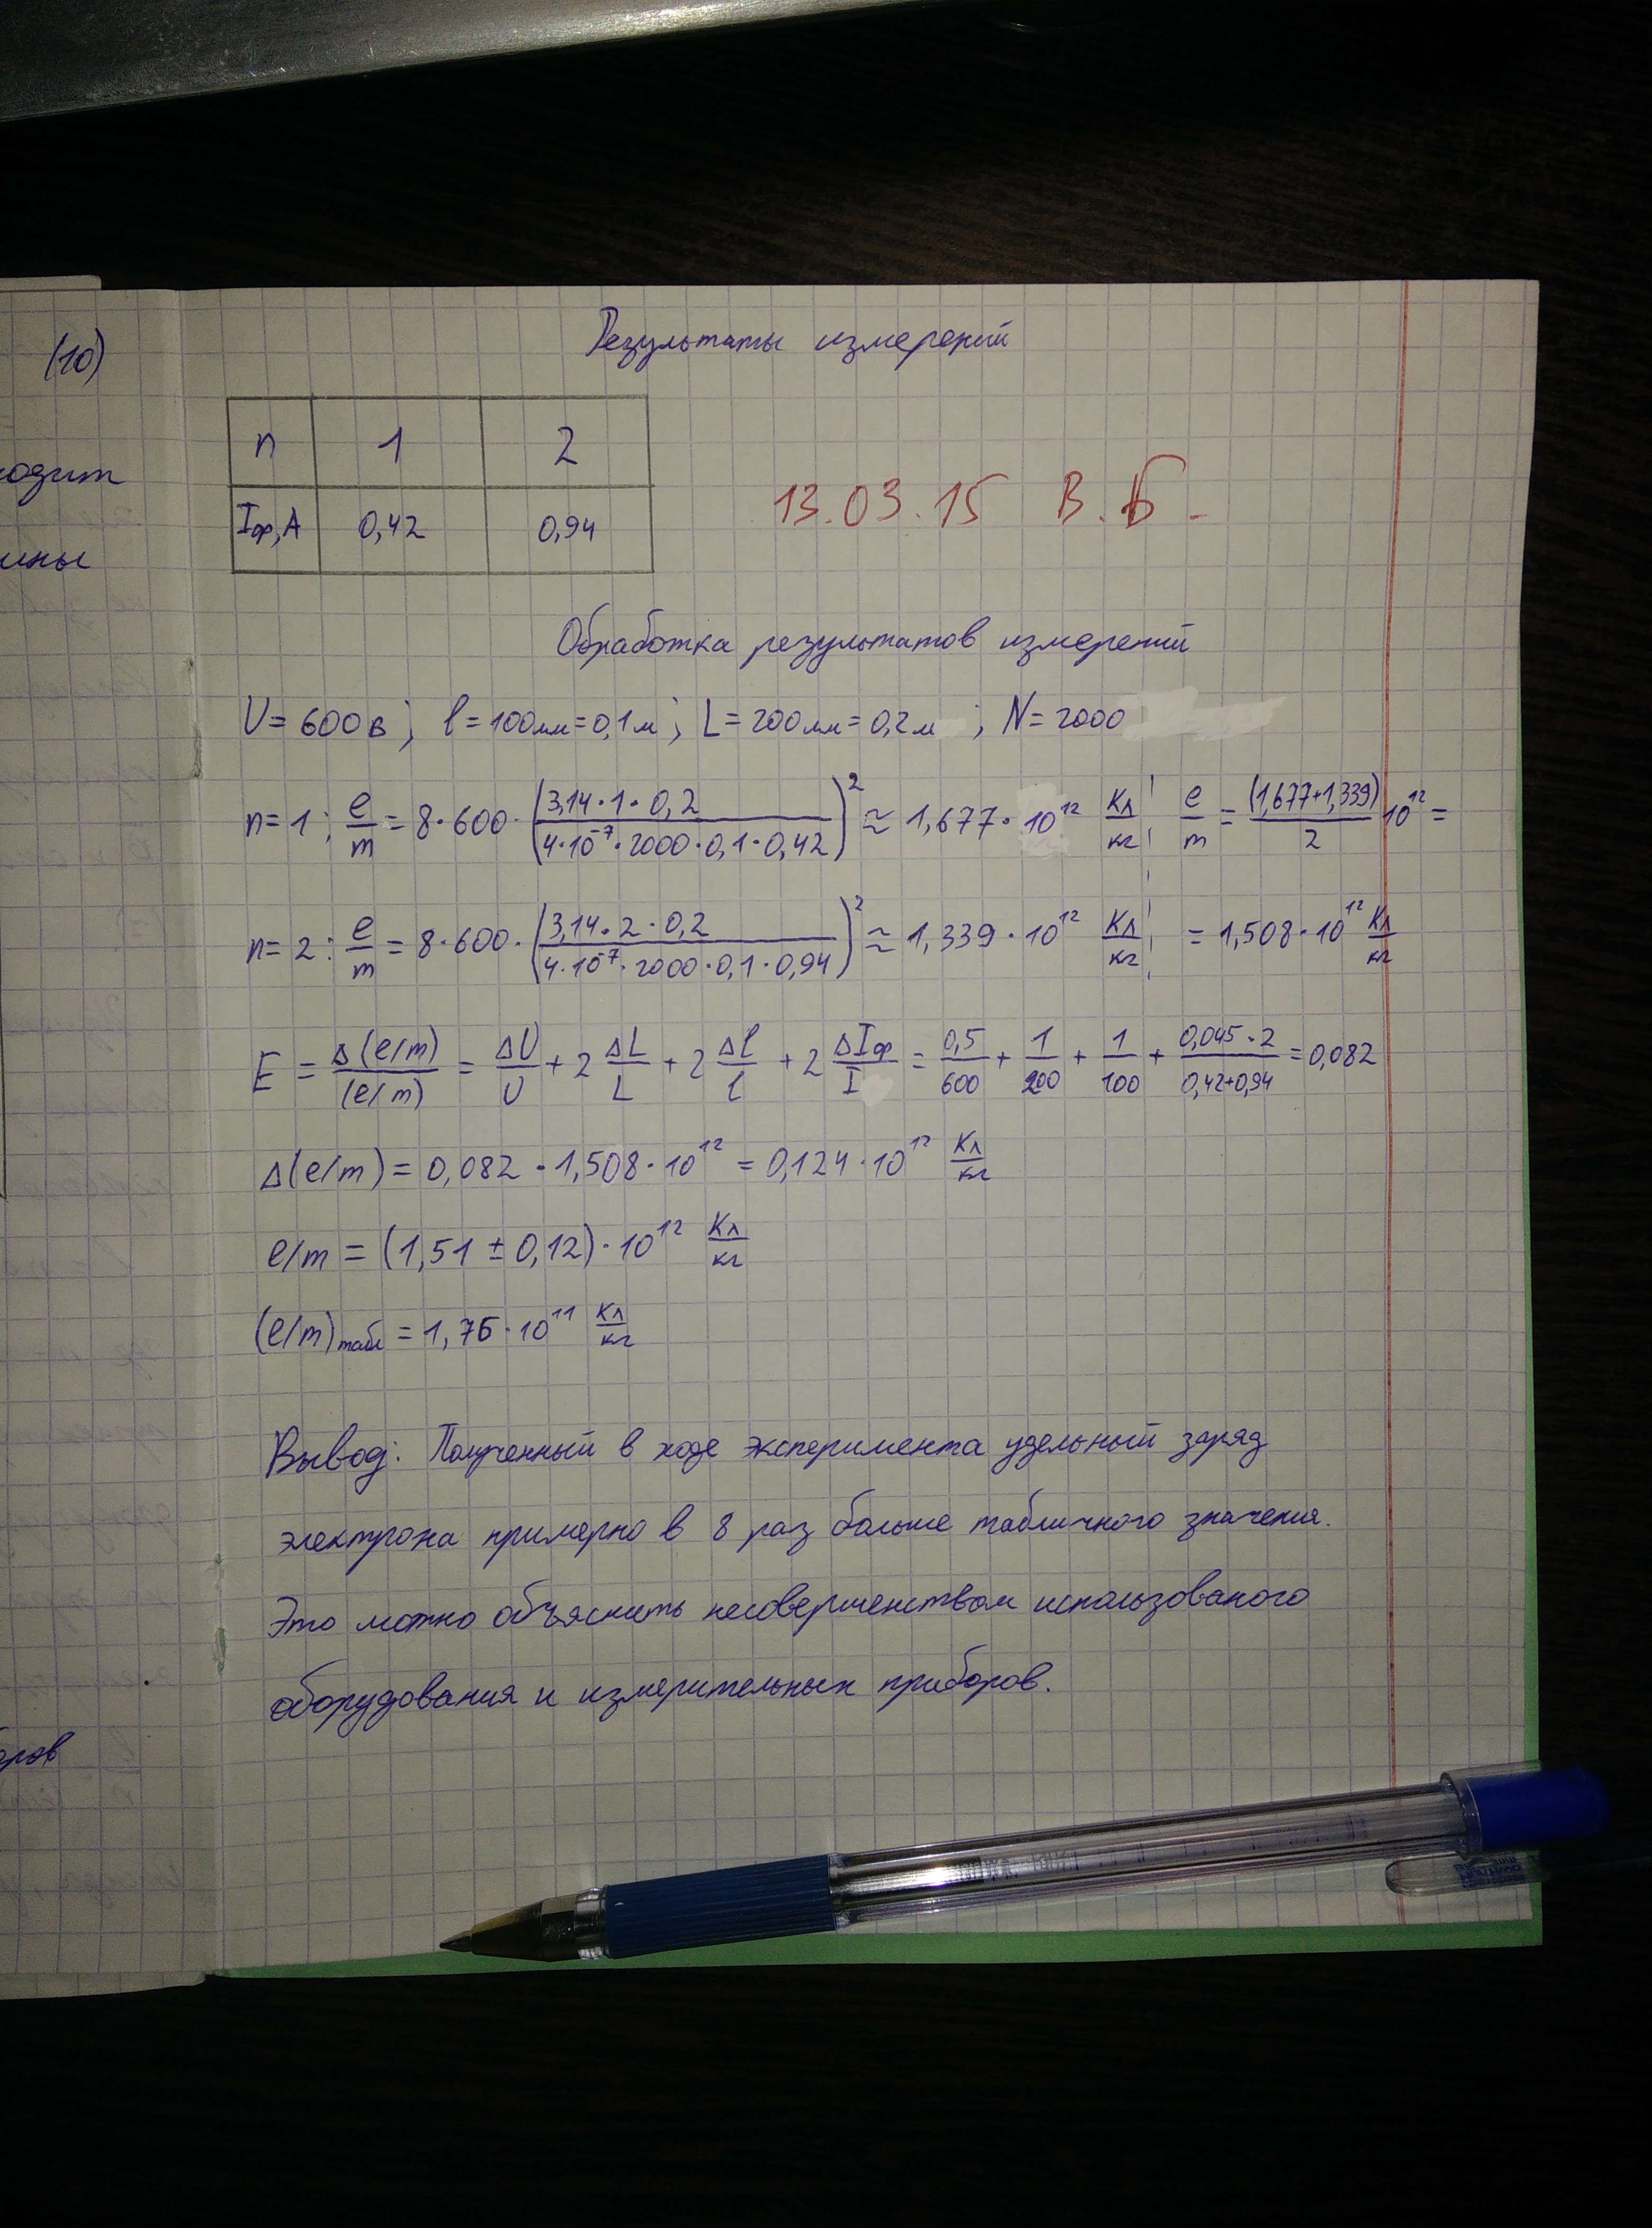 (10)
Результаты измерений
n 1 2
Iф,А 0,42 0,94
13.03.15 В.Б.
Обработка результатов измерений
U = 600в; l = 100мм = 0,1м; L = 200мм = 0,2м; N = 2000
n = 1: e/m = 8·600·(3,14·1·0,2 / 4·10⁻⁷·2000·0,1·0,42)² ≈ 1,677·10¹² Кл/кг; e/m = (1,677+1,339)/2 10¹² =
n = 2: e/m = 8·600·(3,14·2·0,2 / 4·10⁻⁷·2000·0,1·0,94)² ≈ 1,339·10¹² Кл/кг = 1,508·10¹² Кл/кг
E = Δ(e/m)/(e/m) = ΔU/U + 2 ΔL/L + 2 Δl/l + 2 ΔIф/I = 0,5/600 + 1/200 + 1/100 + 0,045·2/0,42+0,94 = 0,082
Δ(e/m) = 0,082·1,508·10¹² = 0,124·10¹² Кл/кг
e/m = (1,51 ± 0,12)·10¹² Кл/кг
(e/m)табл = 1,76·10¹¹ Кл/кг
Вывод: Полученный в ходе эксперимента удельный заряд
электрона примерно в 8 раз больше табличного значения.
Это можно объяснить несовершенством использованого
оборудования и измерительных приборов.